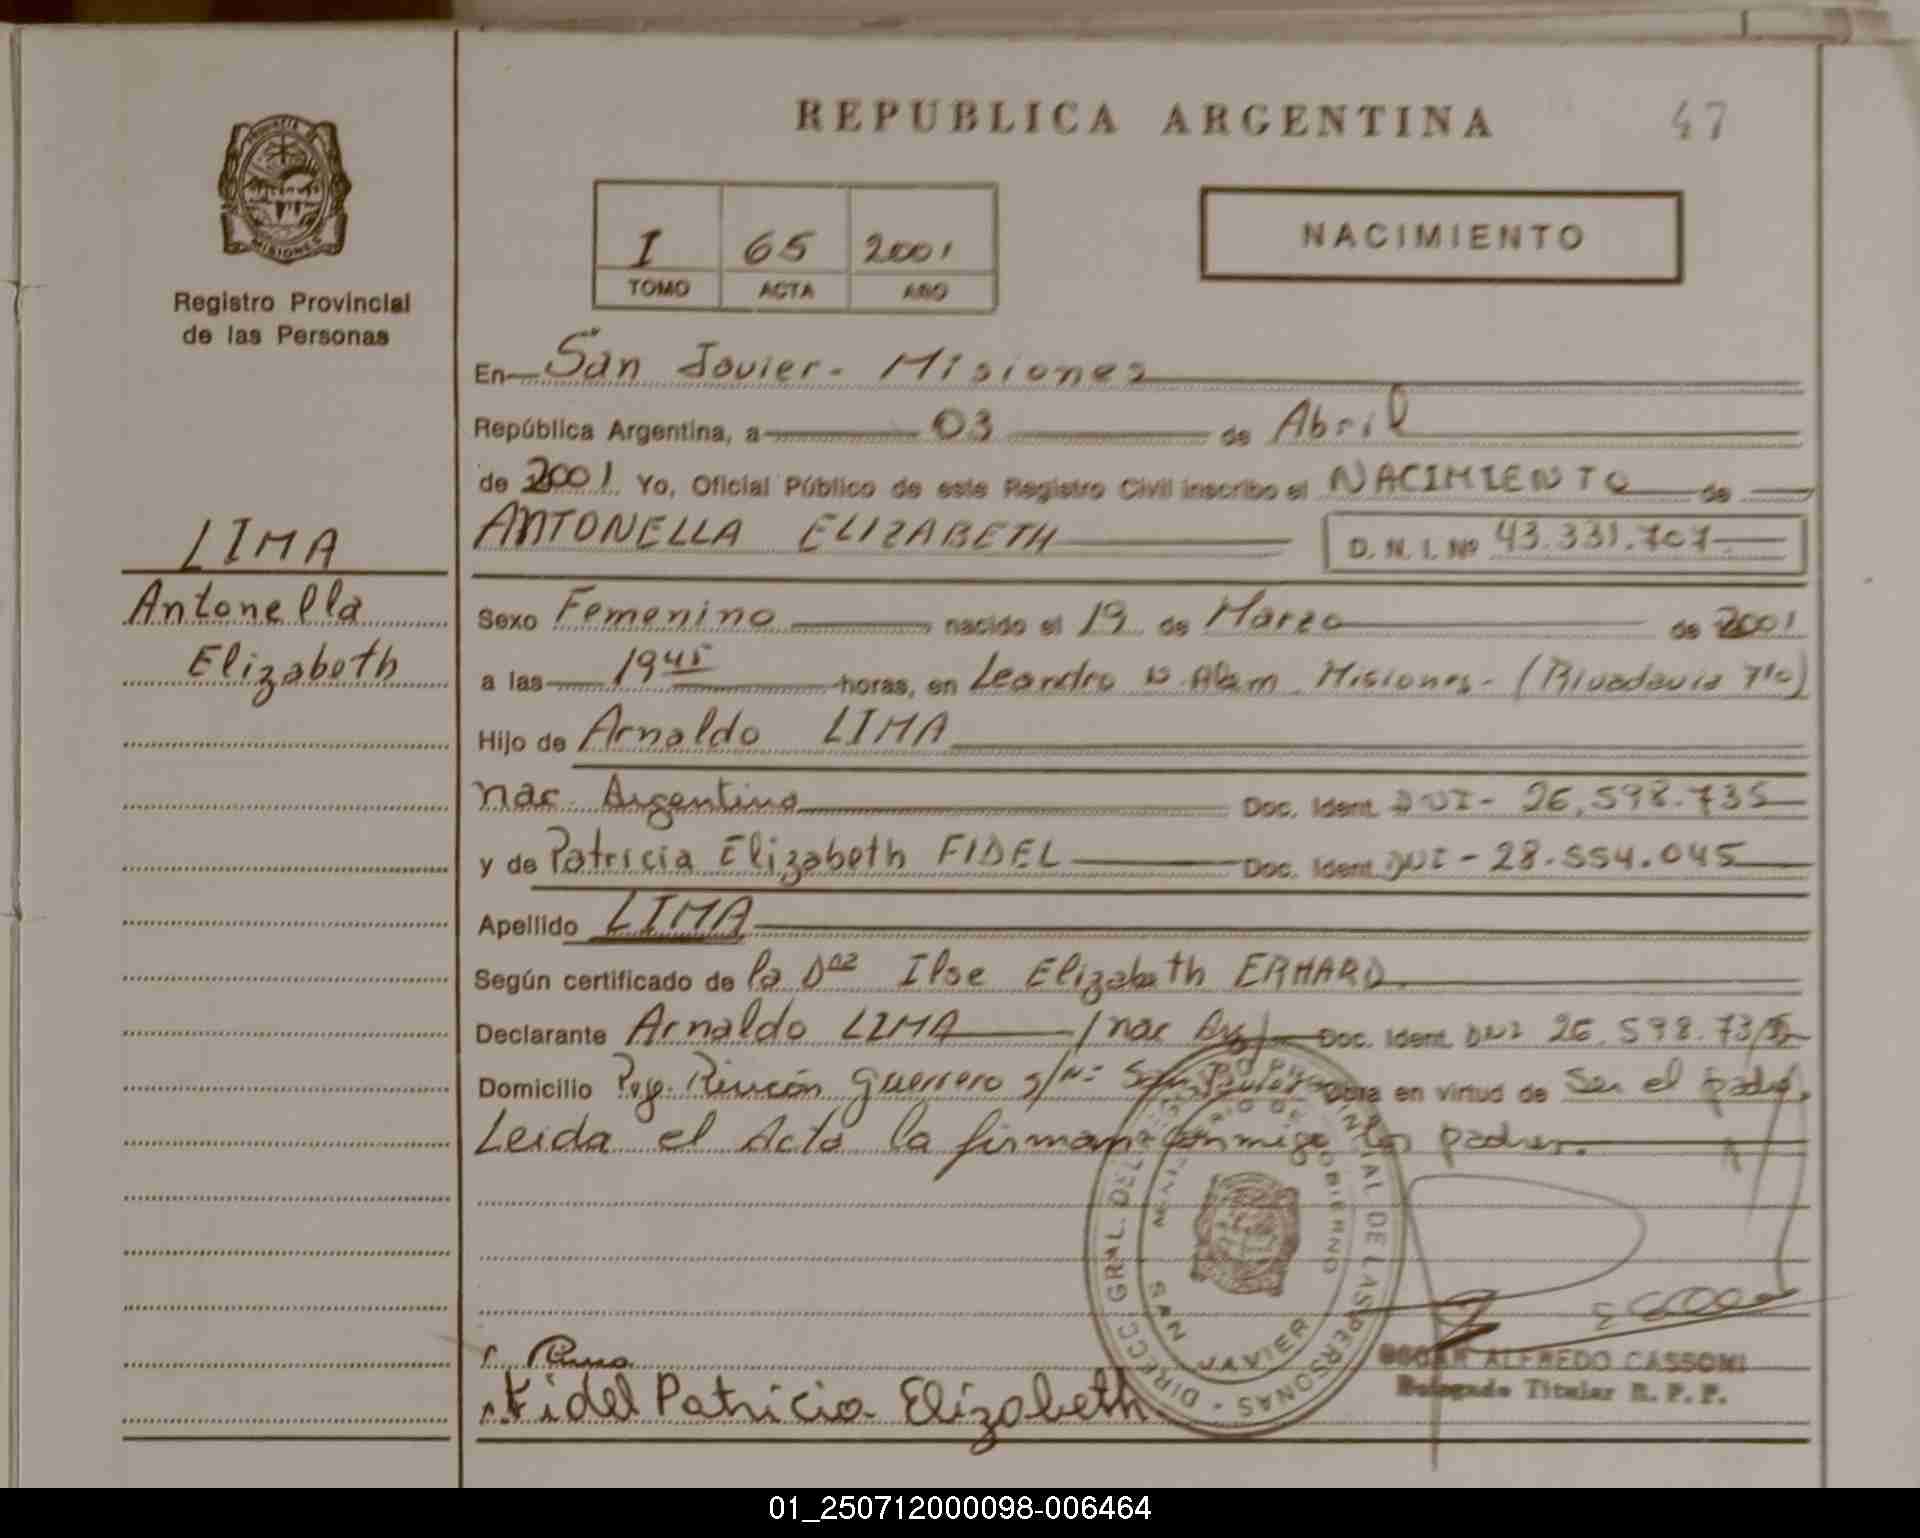 REPUBLICA ARGENTINA
47
PROVINCIA DE
MISIONES
Registro Provincial
de las Personas
I 65 2001
TOMO ACTA AÑO
NACIMIENTO
En San Javier - Misiones
República Argentina, a 03 de Abril
de 2001 Yo, Oficial Público de este Registro Civil inscribo el NACIMIENTO de
LIMA
Antonella
Elizabeth
ANTONELLA ELIZABETH D. N. I. Nº 43.331.707
Sexo Femenino nacido el 19 de Marzo de 2001
a las 19 45 horas, en Leandro N. Alem Misiones - (Rivadavia 710)
Hijo de Arnaldo LIMA
nac. Argentina Doc. Ident. DNI - 26.598.735
y de Patricia Elizabeth FIDEL Doc. Ident. DNI - 28.554.045
Apellido LIMA
Según certificado de la Dra Ilse Elizabeth ERHARD
Declarante Arnaldo LIMA / nac Arg / Doc. Ident. DNI 26.598.735
Domicilio Rincón Guerrero s/nº San Obra en virtud de Ser el padre.
Leida el Acta la firman conmigo los padres.
DIRECC. GRAL. DEL PROVINCIAL DE LAS PERSONAS
MINISTERIO DE GOBIERNO
SAN JAVIER
Fidel Patricia Elizabeth
OSCAR ALFREDO CASSONI
Delegado Titular R. P. P.
01_250712000098-006464